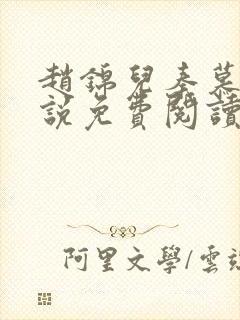 趙錦兒秦慕
說免費閱讀
阿里文學/雲